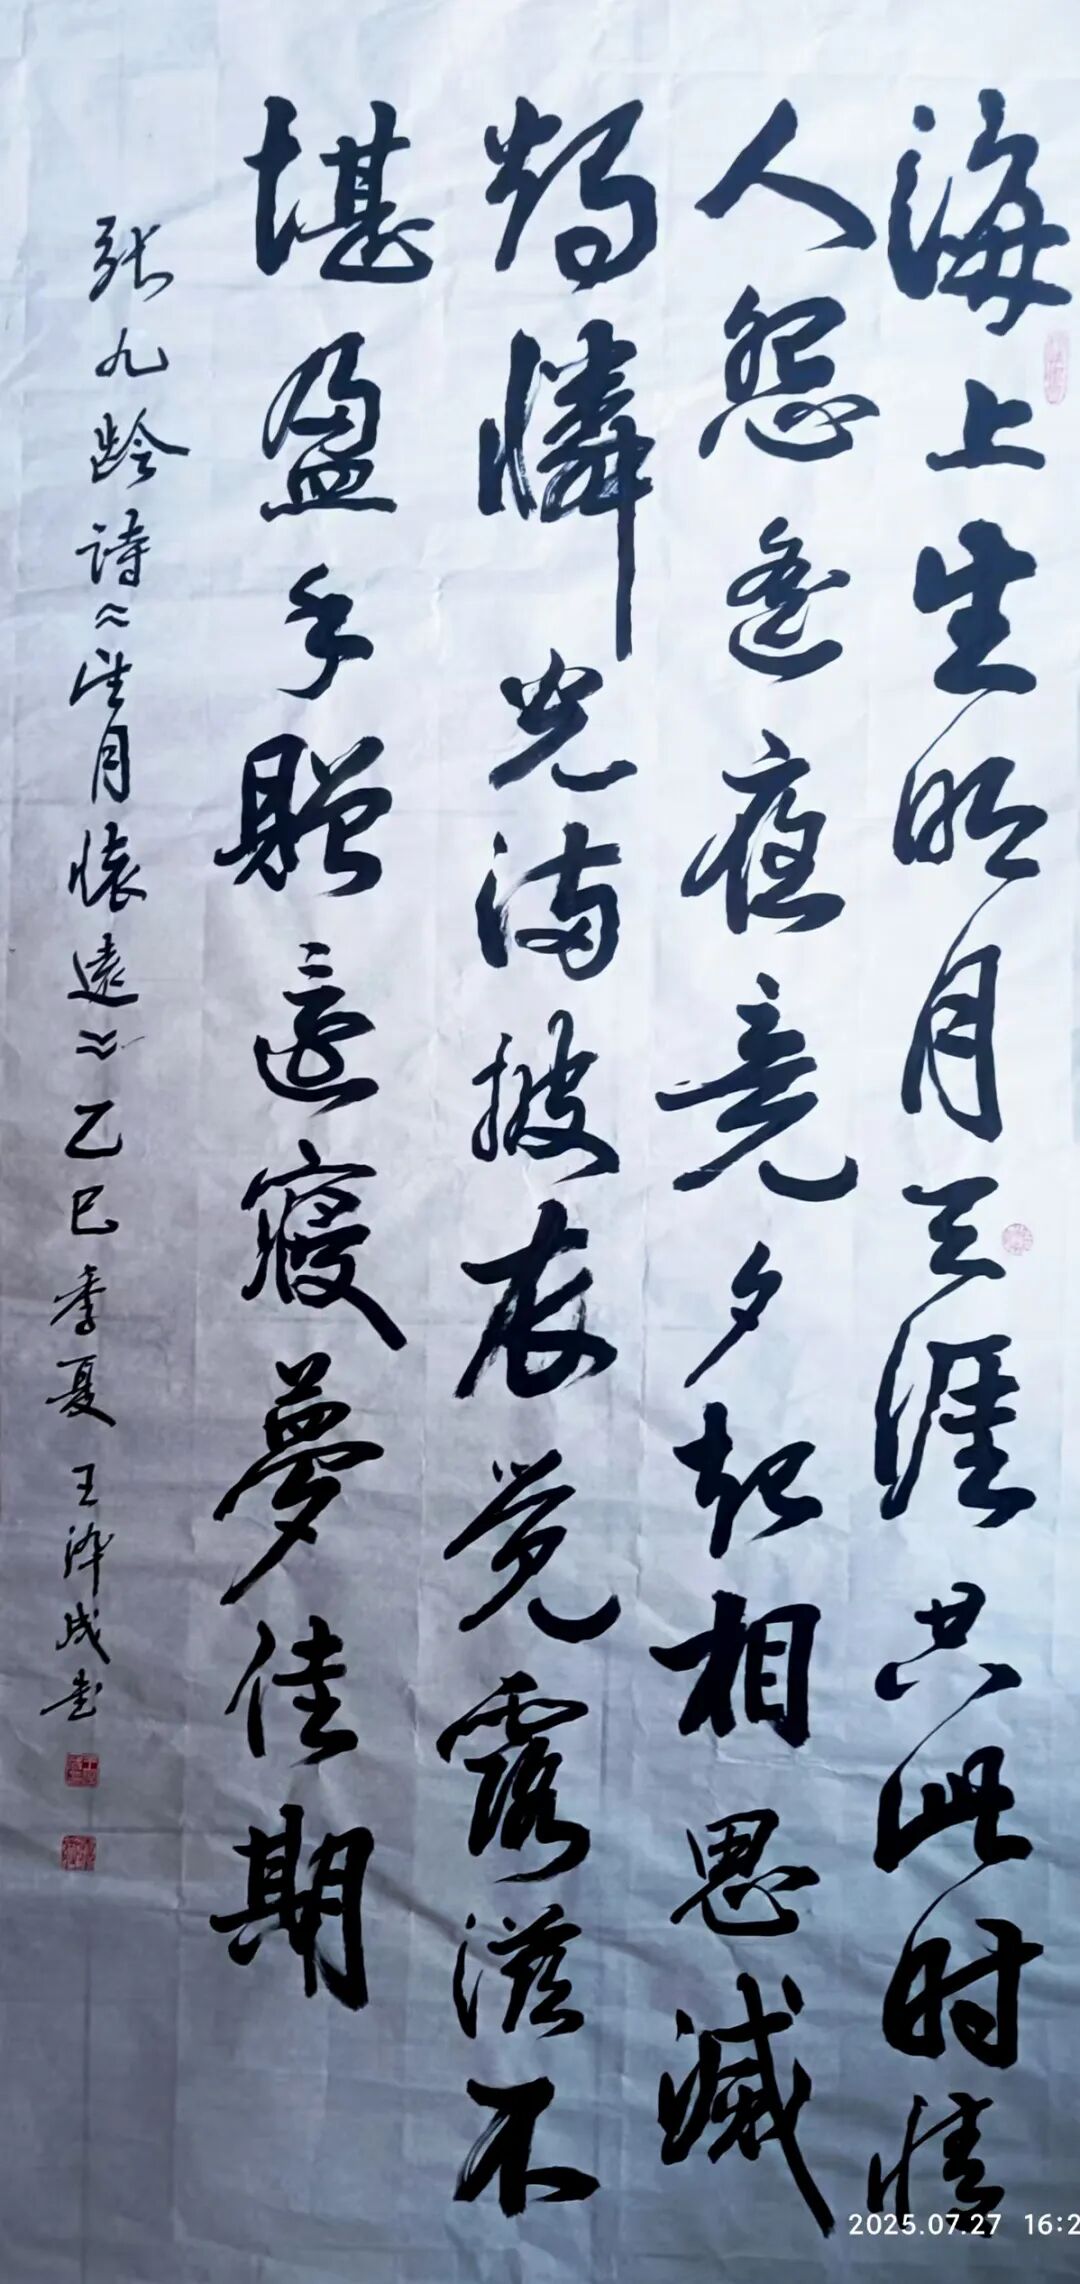 海上生明月天涯共此时情
人怨遥夜竟夕起相思滅
燭憐光满披衣觉露滋不
堪盈手贈還寝夢佳期
张九龄诗《望月懷遠》乙巳季夏王泽成书
2025.07.27 16:2